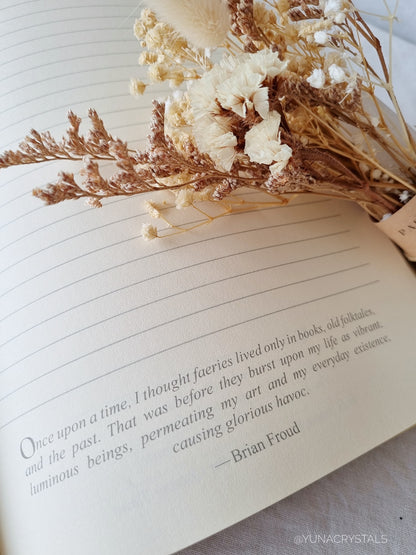 Once upon a time, I thought faeries lived only in books, old folktales,
and the past. That was before they burst upon my life as vibrant,
luminous beings, permeating my art and my everyday existence,
causing glorious havoc.
—Brian Froud
@YUNACRYSTALS